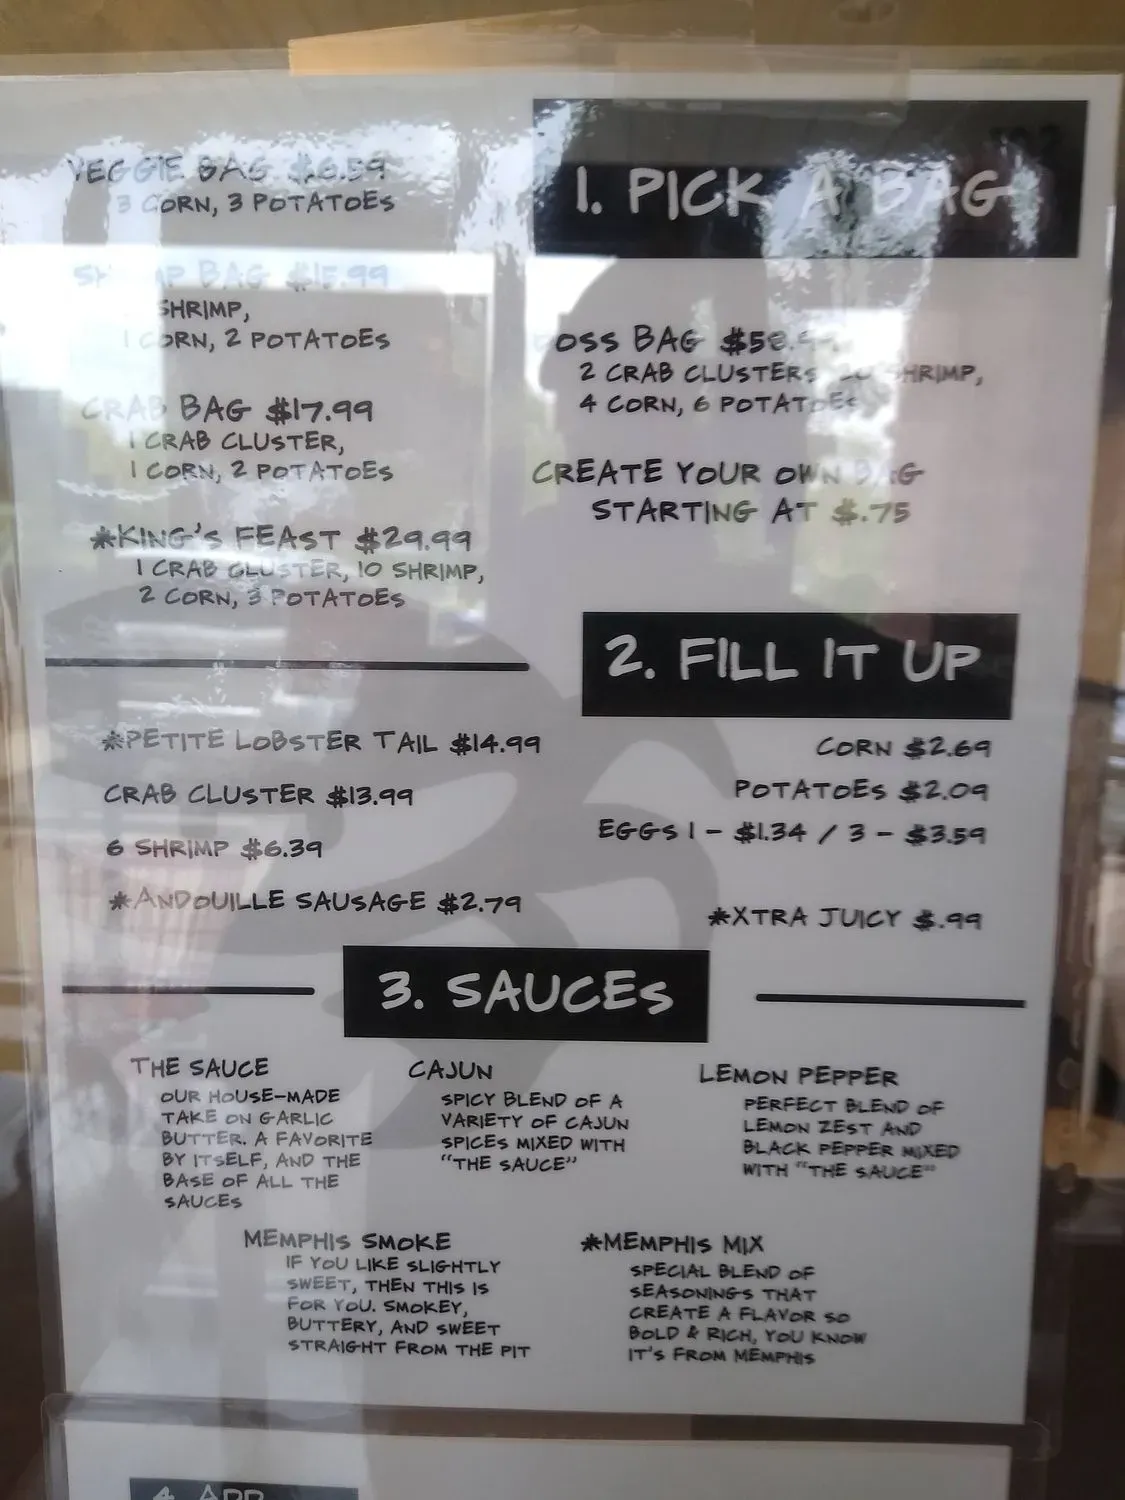 VEGGIE BAG $6.59
3 CORN, 3 POTATOES
BAG $15.99
SHRIMP,
1 CORN, 2 POTATOES
CRAB BAG $17.99
1 CRAB CLUSTER,
1 CORN, 2 POTATOES
*KING'S FEAST $29.99
1 CRAB CLUSTER, 10 SHRIMP,
2 CORN, 3 POTATOES
1. PICK A BAG
BAG
2 CRAB CLUSTERS, SHRIMP,
4 CORN, 6 POTATOES
CREATE YOUR OWN BAG
STARTING AT $.75
2. FILL IT UP
*PETITE LOBSTER TAIL $14.99
CRAB CLUSTER $13.99
6 SHRIMP $6.39
*ANDOUILLE SAUSAGE $2.79
CORN $2.69
POTATOES $2.09
EGGS 1 - $1.34 / 3 - $3.59
*XTRA JUICY $.99
3. SAUCES
THE SAUCE
OUR HOUSE-MADE
TAKE ON GARLIC
BUTTER. A FAVORITE
BY ITSELF, AND THE
BASE OF ALL THE
SAUCES
CAJUN
SPICY BLEND OF A
VARIETY OF CAJUN
SPICES MIXED WITH
"THE SAUCE"
LEMON PEPPER
PERFECT BLEND OF
LEMON ZEST AND
BLACK PEPPER MIXED
WITH "THE SAUCE"
MEMPHIS SMOKE
IF YOU LIKE SLIGHTLY
SWEET, THEN THIS IS
FOR YOU. SMOKEY,
BUTTERY, AND SWEET
STRAIGHT FROM THE PIT
*MEMPHIS MIX
SPECIAL BLEND OF
SEASONINGS THAT
CREATE A FLAVOR SO
BOLD & RICH, YOU KNOW
IT'S FROM MEMPHIS